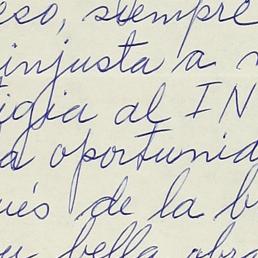 eso, siempre
injusta a
igia al IN
a oportunid
ués de la b
bella obra